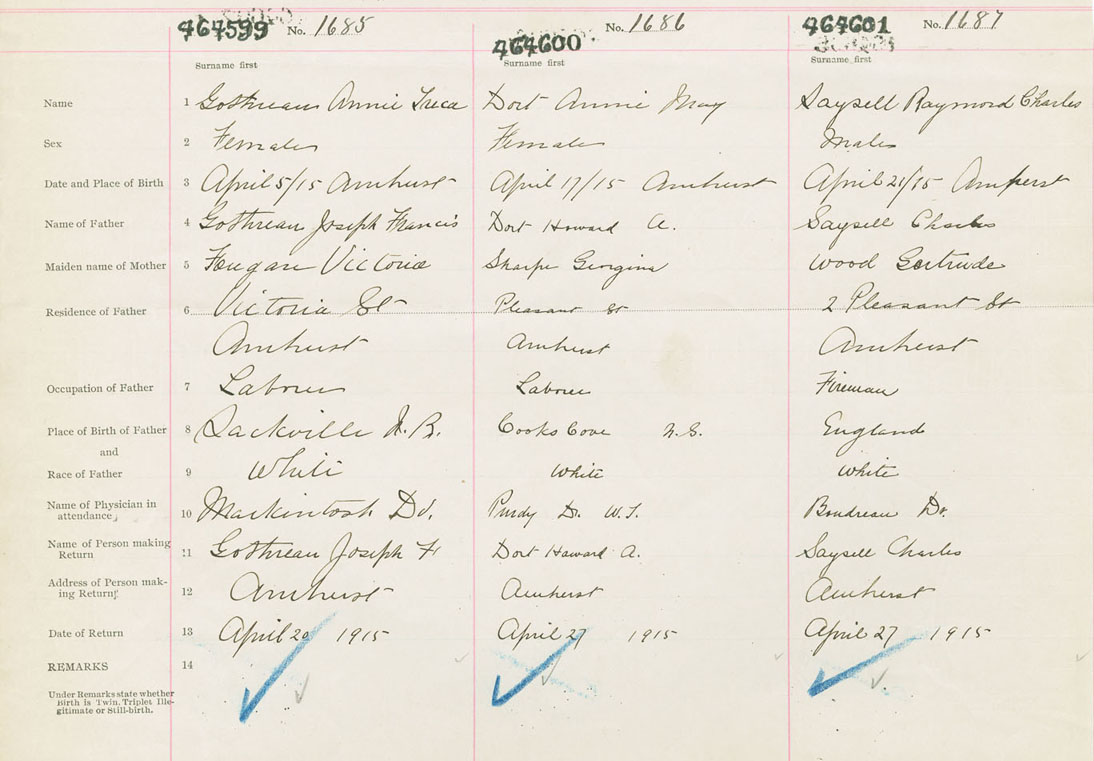 464599 No. 1685
464600 No. 1686
464601 No. 1687
Surname first Surname first Surname first
Name 1 Gothreau Annie Dort Annie May Saysell Raymord Charles
Sex 2 Female Female Male
Date and Place of Birth 3 April 5/15 Amhurst April 17/15 Amhurst April 21/15 Amherst
Name of Father 4 Gothreau Joseph Francis Dort Howard A. Saysell Charles
Maiden name of Mother 5 Victoria Sharpe Georgina Wood Gertrude
Residence of Father 6 Victoria St Pleasant St 2 Pleasant St
Amhurst Amhurst Amhurst
Occupation of Father 7 Laborer Laborer Fireman
Place of Birth of Father 8 Sackville N.B. Cooks Cove N.S. England
and
Race of Father 9 White White White
Name of Physician in
attendance 10 Mackintosh Dr. Purdy Dr. W.T. Boudreau Dr.
Name of Person making
Return 11 Gothreau Joseph F Dort Howard A. Saysell Charles
Address of Person mak-
ing Return 12 Amhurst Amhurst Amhurst
Date of Return 13 April 20 1915 April 27 1915 April 27 1915
REMARKS 14
Under Remarks state whether
Birth is Twin, Triplet Ille-
gitimate or Still-birth.